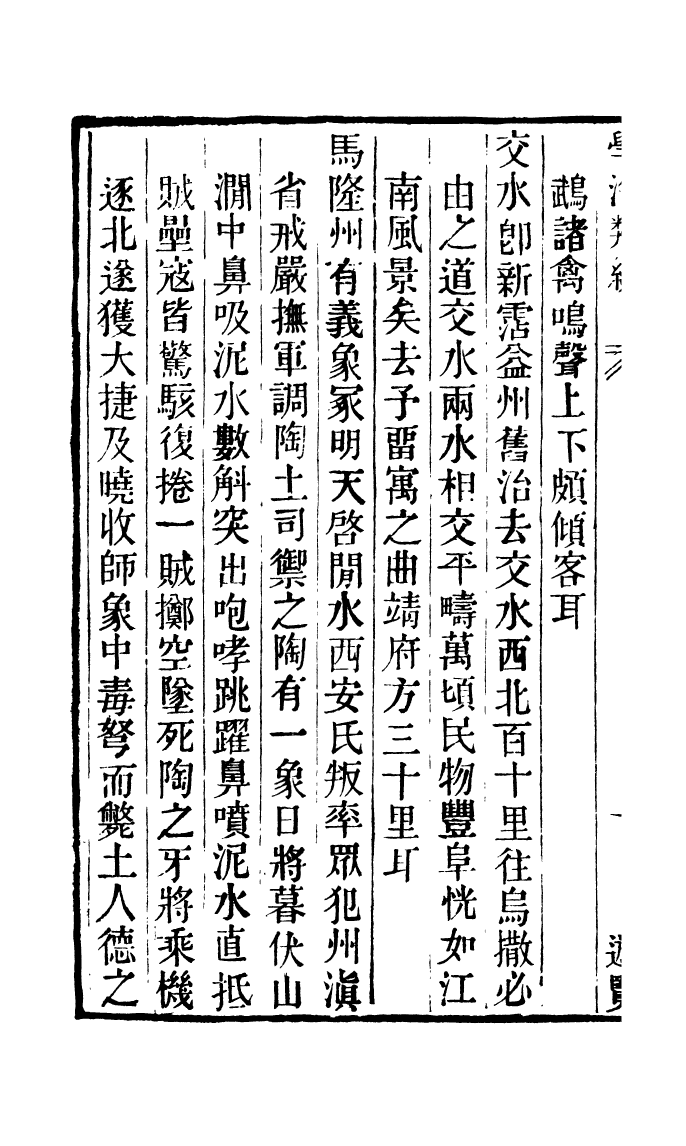 學海類編
鵡諸禽鳴聲上下頗傾客耳
交水卽新霑益州舊治去交水西北百十里往烏撒必
由之道交水兩水相交平疇萬頃民物豐阜恍如江
南風景矣去予畱寓之曲靖府方三十里耳
馬隆州有義象冢明天啓閒水西安氏叛率眾犯州滇
省戒嚴撫軍調陶土司禦之陶有一象日將暮伏山
澗中鼻吸泥水數斛突出咆哮跳躍鼻噴泥水直抵
賊壘寇皆驚駭復捲一賊擲空墜死陶之牙將乘機
逐北遂獲大捷及曉收師象中毒弩而斃土人德之